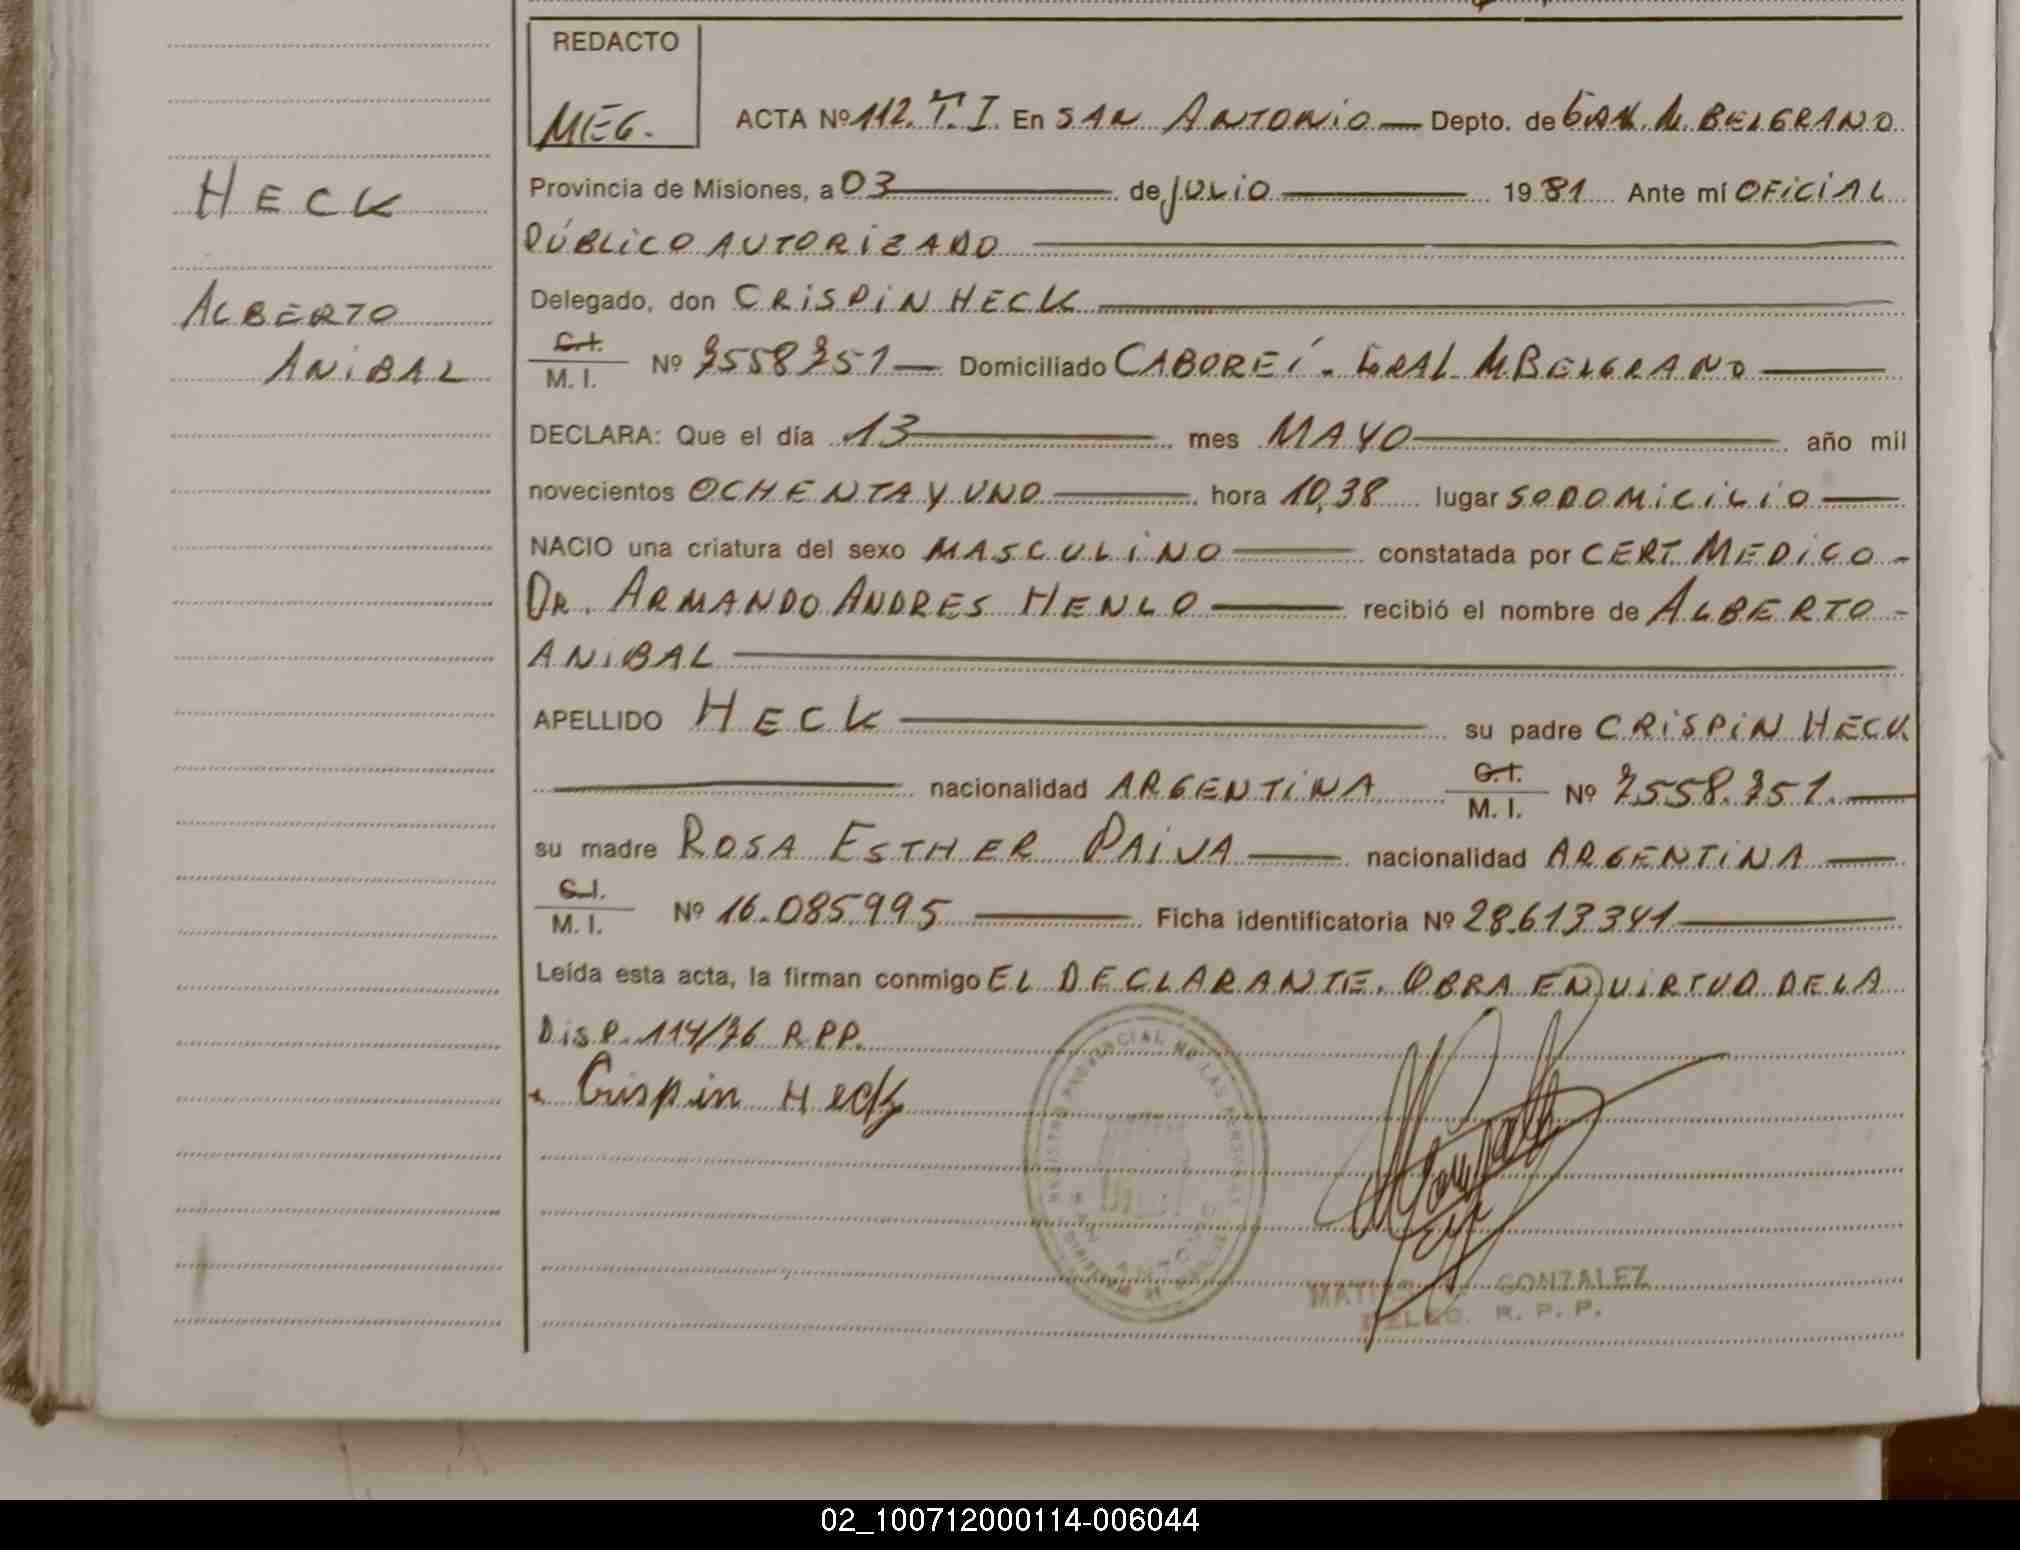 REDACTO
MEG.
ACTA Nº 112. T. I. En SAN ANTONIO — Depto. de GRAL. M. BELGRANO
Provincia de Misiones, a 03 de JULIO 1981 Ante mí OFICIAL
PÚBLICO AUTORIZADO
Delegado, don CRISPIN HECK
C.I. / M. I. Nº 7558751 — Domiciliado CABOREÍ - GRAL M BELGRANO
DECLARA: Que el día 13 mes MAYO año mil
novecientos OCHENTA Y UNO hora 10,38 lugar SU DOMICILIO
NACIO una criatura del sexo MASCULINO constatada por CERT. MEDICO -
DR. ARMANDO ANDRES HENLO recibió el nombre de ALBERTO -
ANIBAL
APELLIDO HECK su padre CRISPIN HECK
nacionalidad ARGENTINA C.I. / M. I. Nº 7558.751.
su madre ROSA ESTHER PAIVA nacionalidad ARGENTINA
C.I. / M. I. Nº 16.085.995 Ficha identificatoria Nº 28.613.341
Leída esta acta, la firman conmigo EL DECLARANTE. OBRA EN VIRTUD DE LA
DISP. 114/76 R.P.P.
Crispin Heck
GONZALEZ
R. P. P.
HECK
ALBERTO
ANIBAL
02_100712000114-006044